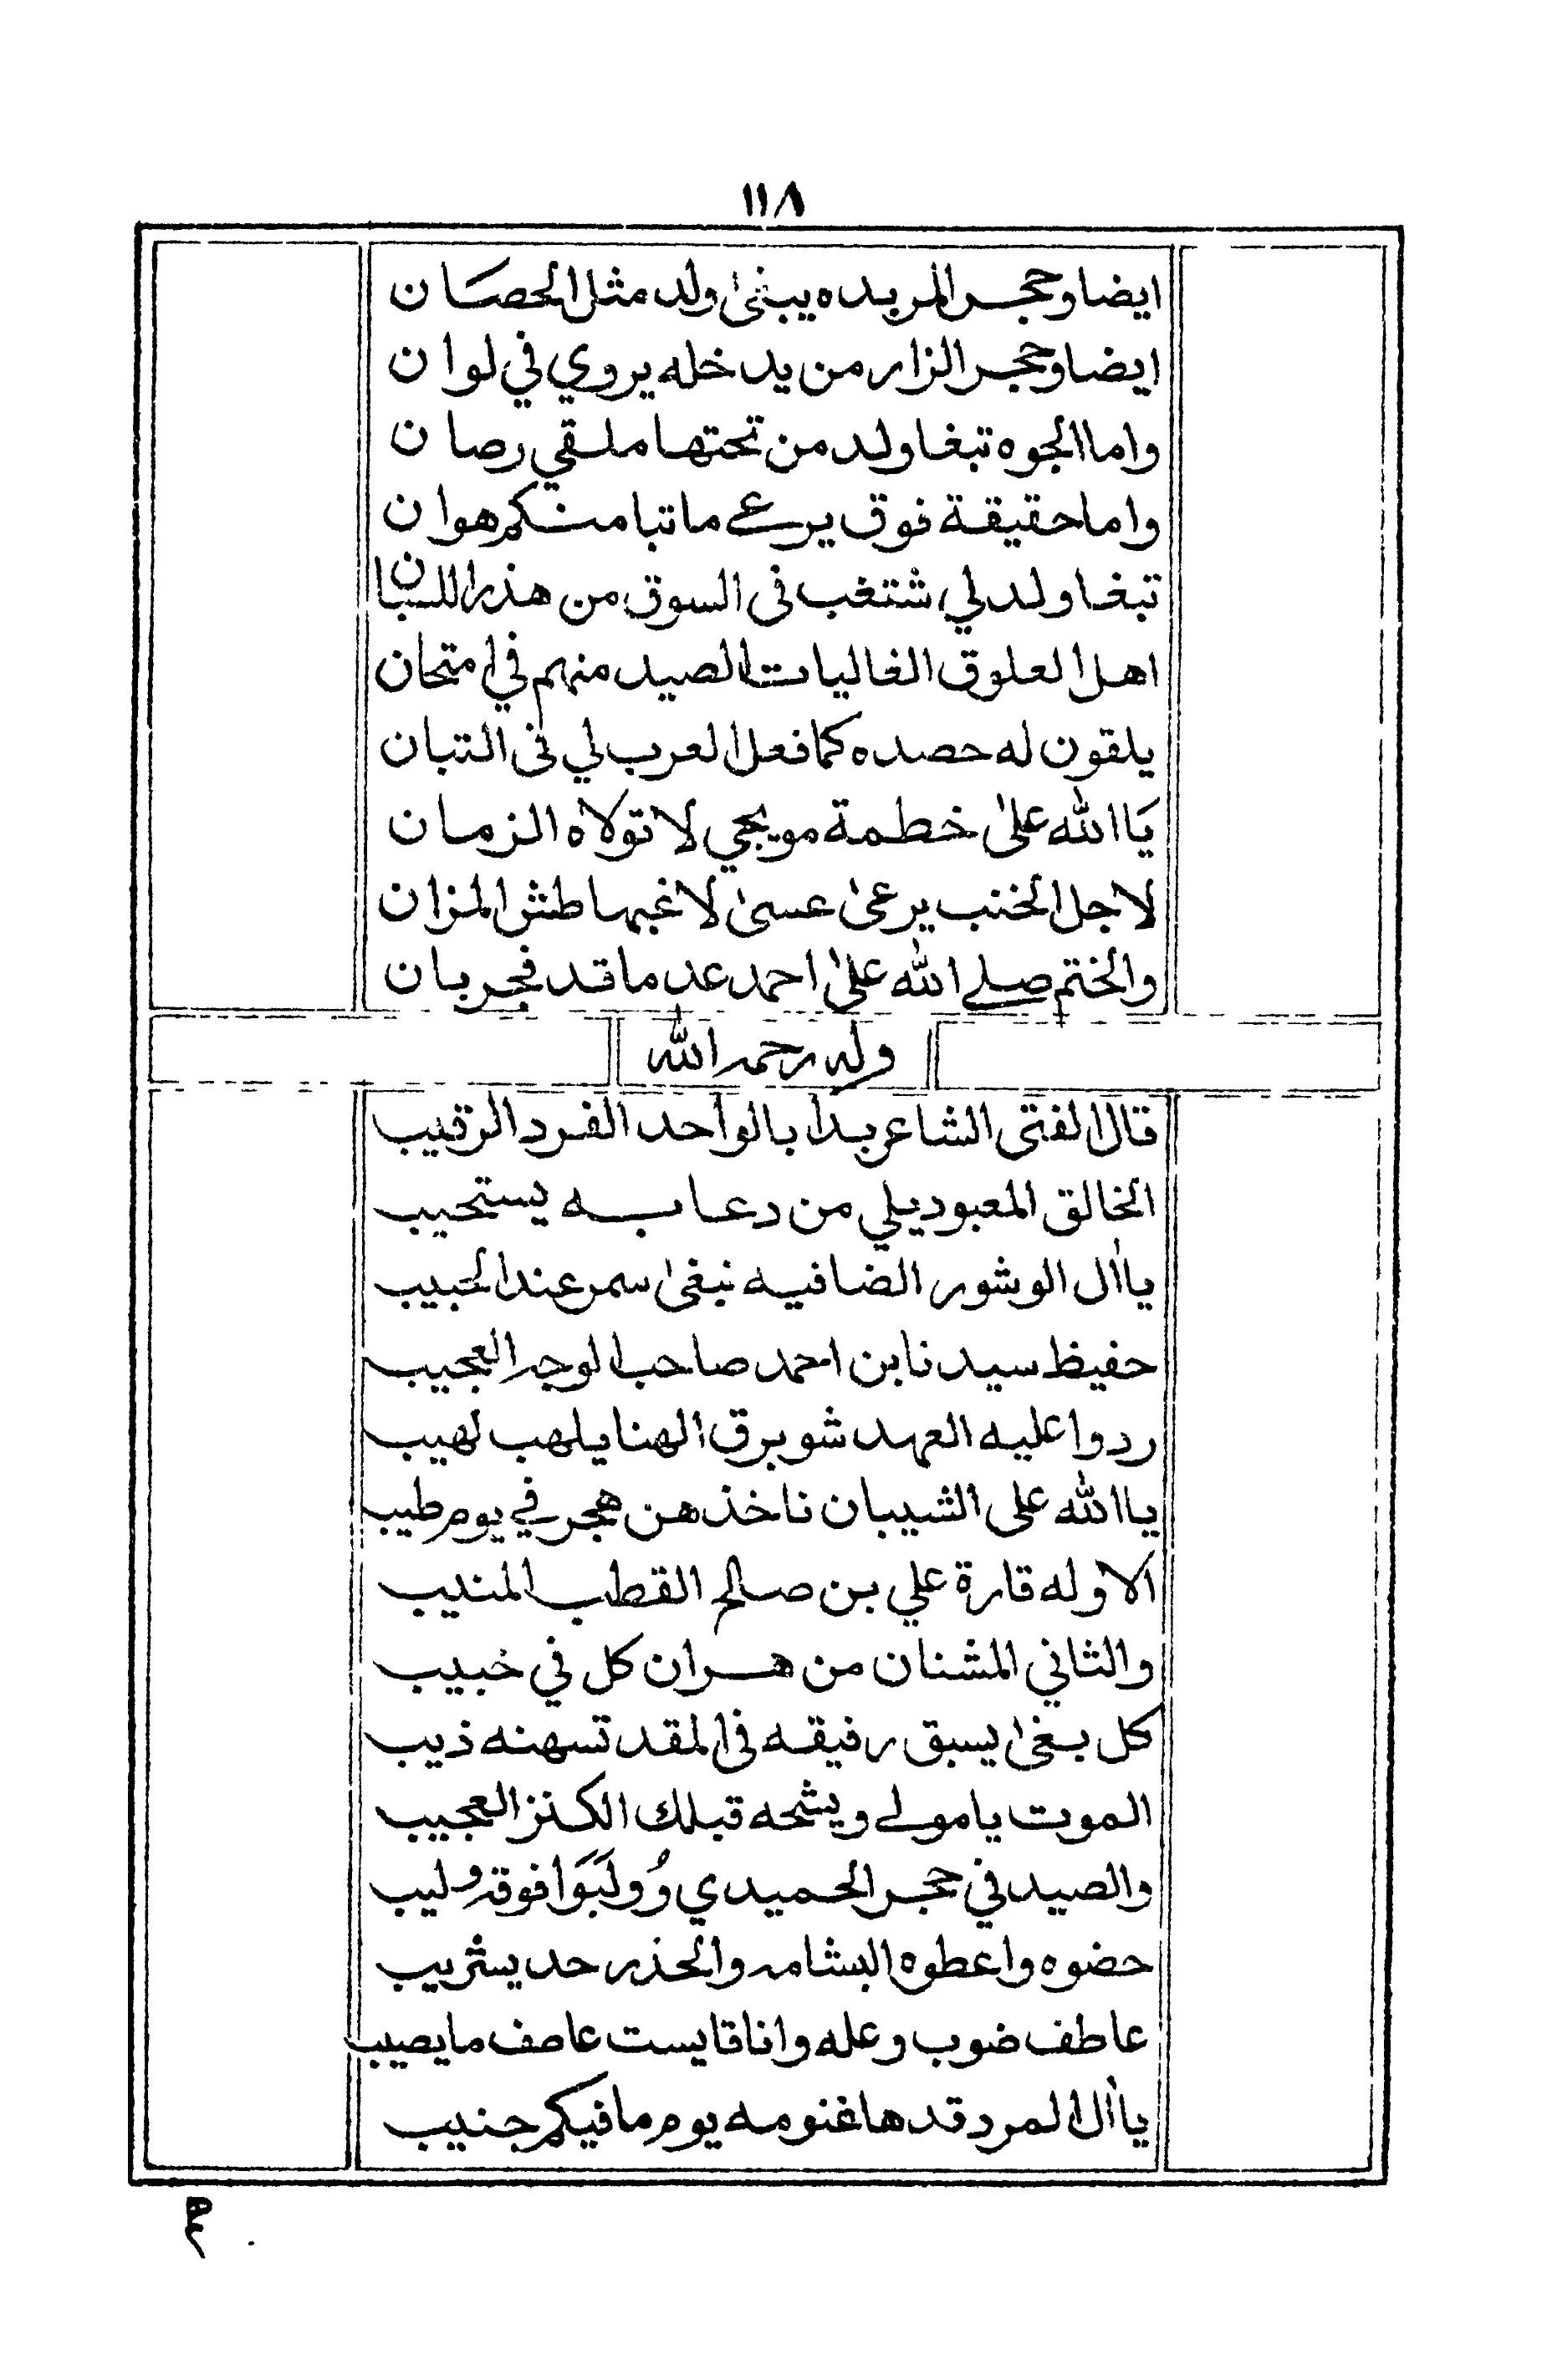 ١١٨
ايضا وحجر المربده يبغىٰ ولد مثل الحصَان
ايضا وحجر الزار من يدخله يروي في لوان
واما الجوه تبغا ولد من تحتها ملقي رصان
واما حقيقة فوق يرعى ما تبا منكم هوان
تبغا ولد لي شتغب في السوق من هذر اللسان
اهل العلوق الغاليات الصيد منهم في امتحان
يلقون له حصده كما فعل العرب لي في التبان
يَا الله علىٰ خطمة مويجي لا تولاه الزمان
لاجل الخنب يرعىٰ عسىٰ لا غبها طش المزان
والختم صلى الله علىٰ احمد عد ما قد فجر بان
وله رحمه الله
قال الفتى الشاعر بدا بالواحد الفرد الرقيب
الخالق المعبود يلي من دعا به يستجيب
ياأل الوشور الضافيه نبغىٰ سمر عند الحبيب
حفيظ سيدنا بن احمد صاحب الوجه العجيب
ردوا عليه العهد شو برق الهنا يلهب لهيب
يا الله على الشيبان ناخذهن هجر في يوم طيب
الاوله قارة علي بن صالح القطب المنيب
والثاني المشنان من هران كل في خبيب
كل بغىٰ يسبق رفيقه في المقد تسهنه ذيب
الموت يا مولى ويشحه قبلك الكنز العجيب
والصيد في حجر الحميدي وُولَبَوَا فوقه وليب
حضوه واعطوه البشامه والحذر حد يشريب
عاطف ضوب وعله وانا قايست عاصف ما يصيب
ياأل المرد قدها غنومه يوم ما فيكم جنيب
هم